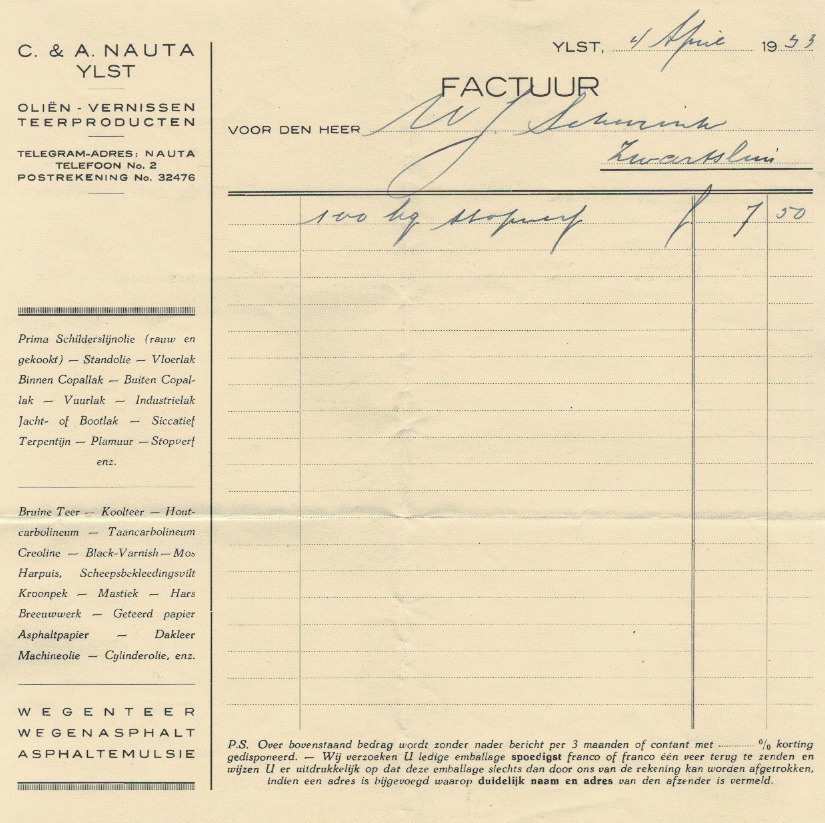 C. & A. NAUTA
YLST
OLIËN - VERNISSEN
TEERPRODUCTEN
TELEGRAM-ADRES: NAUTA
TELEFOON No. 2
POSTREKENING No. 32476
Prima Schilderslijnolie (rauw en
gekookt) — Standolie — Vloerlak
Binnen Copallak — Buiten Copal-
lak — Vuurlak — Industrielak
Jacht- of Bootlak — Siccatief
Terpentijn — Plamuur — Stopverf
enz.
Bruine Teer — Koolteer — Hout-
carbolineum — Taancarbolineum
Creoline — Black-Varnish — Mos
Harpuis, Scheepsbekleedingsvilt
Kroonpek — Mastiek — Hars
Breeuwwerk — Geteerd papier
Asphaltpapier — Dakleer
Machineolie — Cylinderolie, enz.
WEGENTEER
WEGENASPHALT
ASPHALTEMULSIE
YLST, 4 April 1933
FACTUUR
VOOR DEN HEER W J Schurink
Zwartsluis
100 kg stopverf f 7 50
P.S. Over bovenstaand bedrag wordt zonder nader bericht per 3 maanden of contant met ........ % korting
gedisponeerd. — Wij verzoeken U ledige emballage spoedigst franco of franco één veer terug te zenden en
wijzen U er uitdrukkelijk op dat deze emballage slechts dan door ons van de rekening kan worden afgetrokken,
indien een adres is bijgevoegd waarop duidelijk naam en adres van den afzender is vermeld.